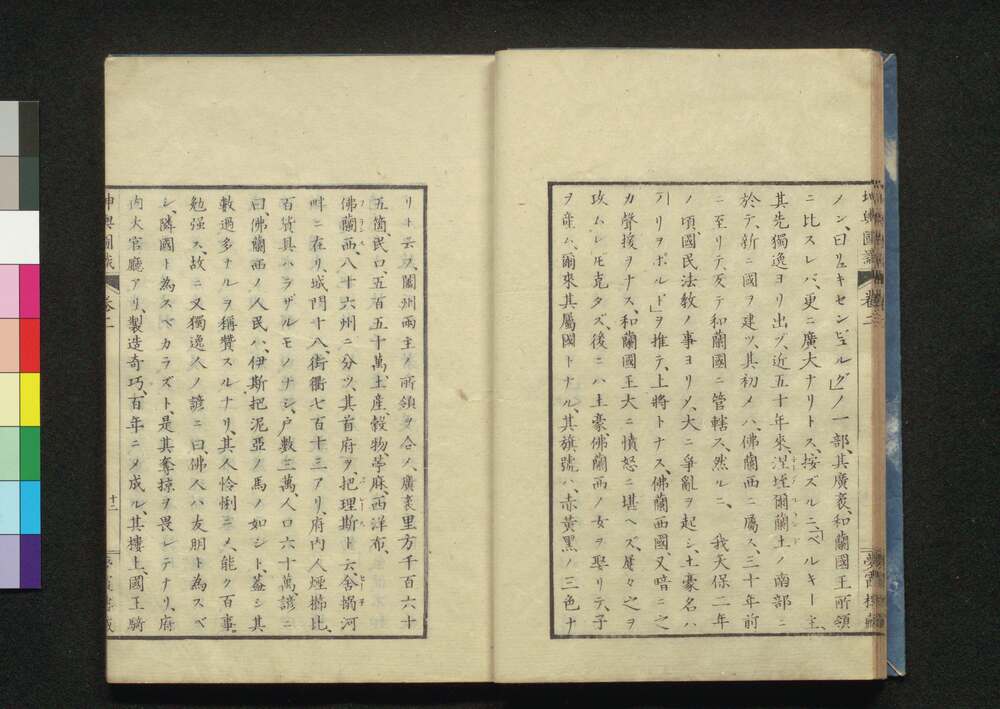 坤輿圖識 卷二
ノン、曰リュキセンビュルグノ一部、其廣袤、和蘭國王所領
ニ比スレバ、更ニ廣大ナリトス、按ズルニ、「ベルキー」主、
其先獨逸ヨリ出ヅ、近五十年來、涅垤爾蘭土ノ南部ニ
於テ、新ニ國ヲ建ツ、其初メハ、佛蘭西ニ屬ス、三十年前
ニ至リテ、反テ和蘭國ニ管轄ス、然ルニ、我天保二年
ノ頃、國民法教ノ事ヨリ乄、大ニ爭亂ヲ起シ、土豪名ハ
「リヲポルド」ヲ推テ、上將トナス、佛蘭西國又暗ニ之
カ聲援ヲナス、和蘭國王大ニ憤怒ニ堪ヘズ、屢々之ヲ
攻ムレ𪜈克タズ、後ニハ土豪佛蘭西ノ女ヲ娶リテ、子
ヲ産ム、爾來其屬國トナル、其旗號ハ、赤黃黑ノ三色ナ
リト云フ、闔州兩主ノ所領ヲ合乄、廣袤里方千百六十
五箇、民口、五百五十萬、土産、穀物苧麻、西洋布、
佛蘭西、八十六州ニ分ツ、其首府ヲ、把理斯ト云、舍搦河
畔ニ在リ、城門十八、街衢七百十三アリ、府内人煙櫛比、
百貨具ハラザルモノナシ、戸數三萬、人口六十萬、諺ニ
曰、佛蘭西ノ人民ハ、伊斯把泥亞ノ馬ノ如シト、蓋シ其
數過多ナルヲ稱贊スルナリ、其人怜悧ニ乄、能ク百事
勉强ス、故ニ又獨逸人ノ諺ニ曰、佛人ハ友朋ト為スベ
シ、隣國ト為スベカラズト、是其奪掠ヲ畏レテナリ、府
内大官廳アリ、製造奇巧、百年ニ乄成ル、其樓上、國王騎
坤輿圖識 卷二 十二